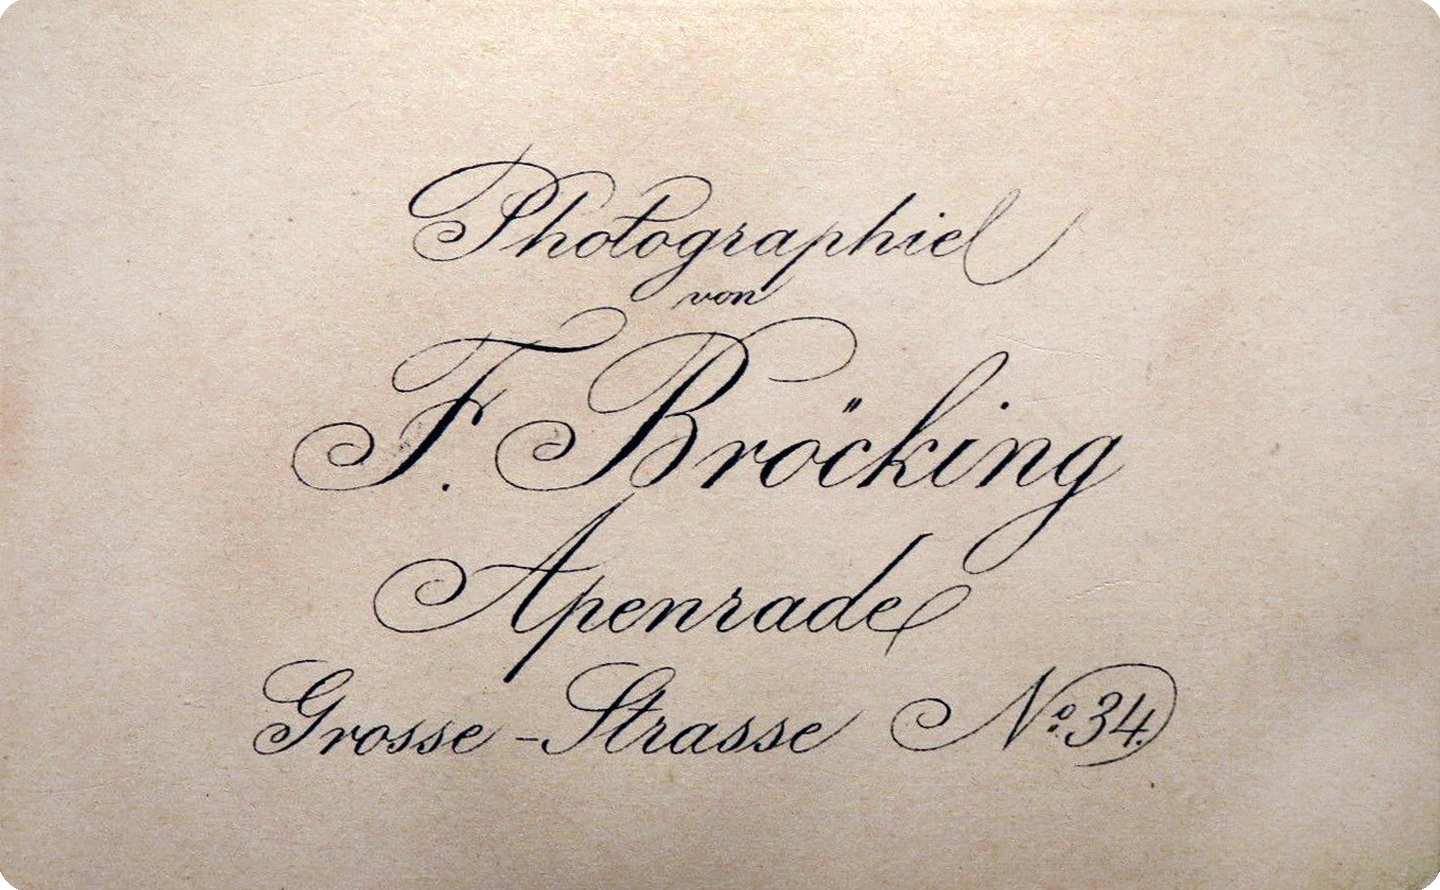 Photographie
von
F. Bröcking
Apenrade
Grosse-Strasse No. 34.